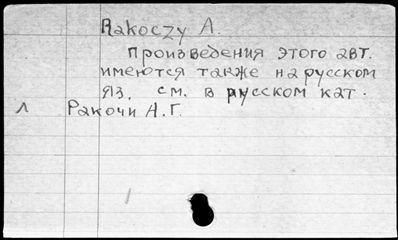 Rakoczy A.
Произведения этого авт.
имеются также на русском
яз. см. в русском кат.
Л Ракочи А.Г.